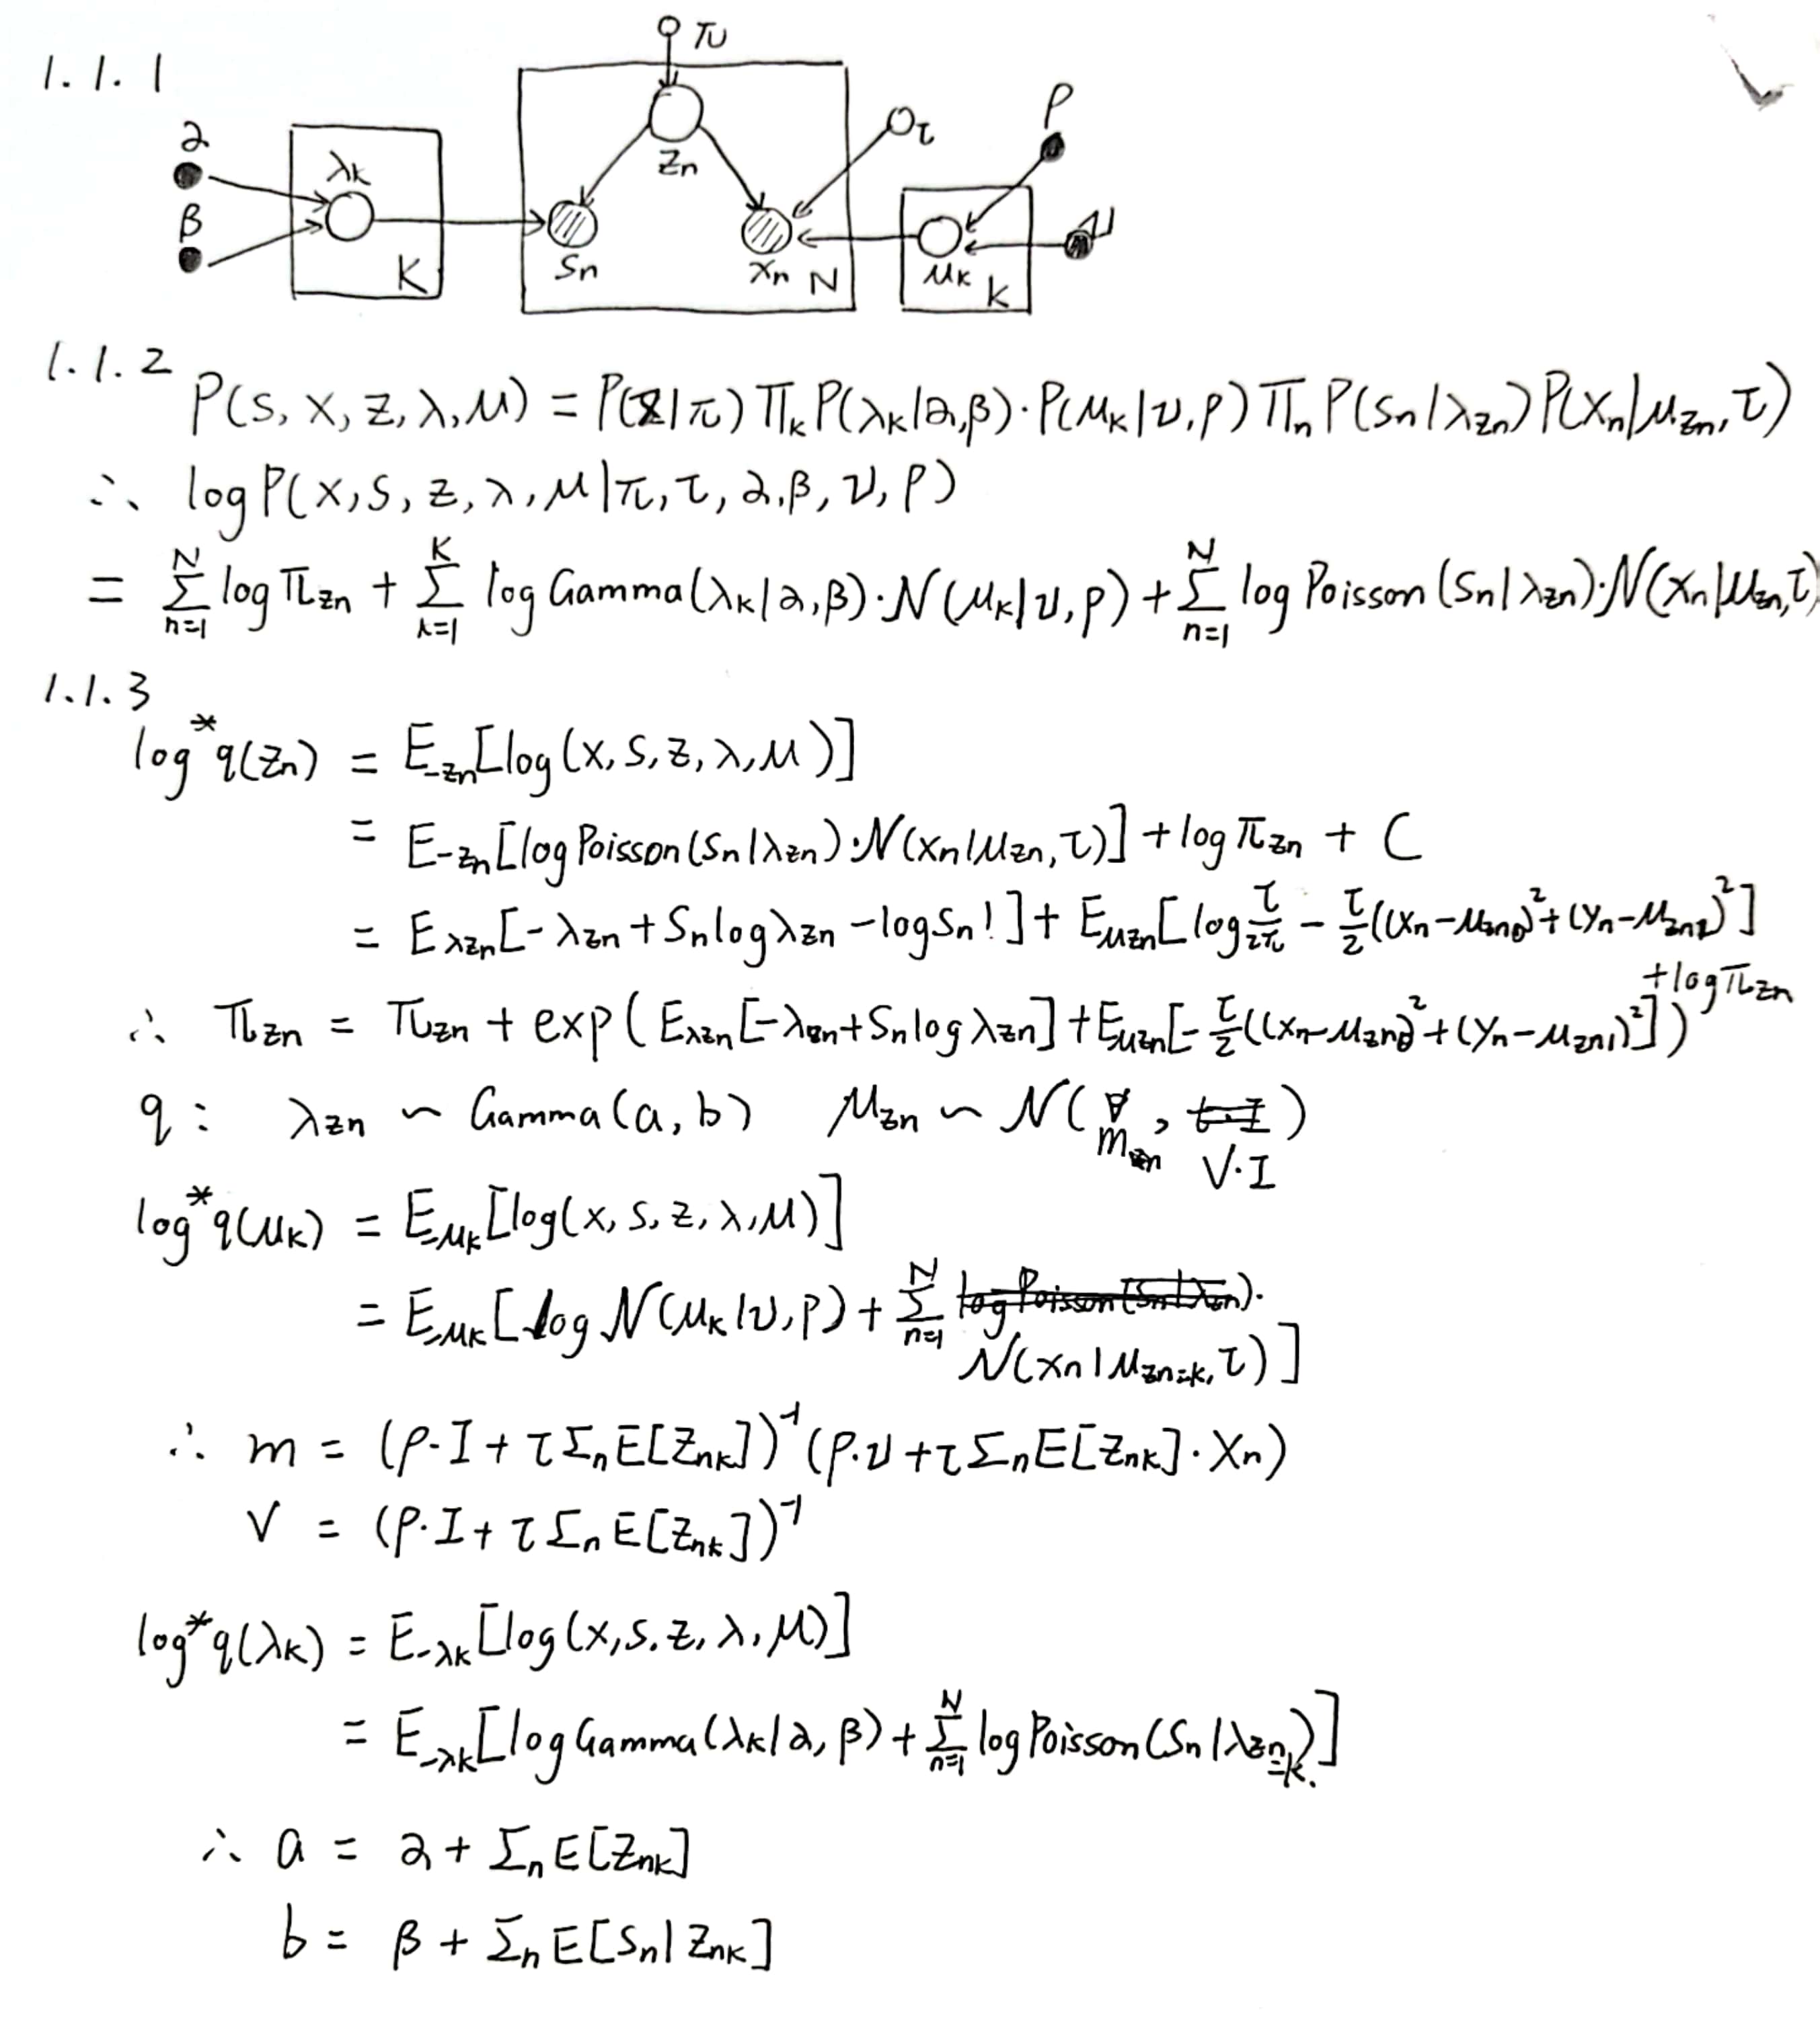 1.1.1
π
α
β
λk
K
zn
sn
xn
N
τ
ρ
ν
μk
K
1.1.2
P(s, x, z, λ, μ) = P(z|π) Πk P(λk|α,β)·P(μk|ν,ρ) Πn P(sn|λzn) P(xn|μzn, τ)
∴ log P(x, s, z, λ, μ|π, τ, α, β, ν, ρ)
= Σ_{n=1}^{N} log πzn + Σ_{k=1}^{K} log Gamma(λk|α, β)·N(μk|ν, ρ) + Σ_{n=1}^{N} log Poisson(sn|λzn)·N(xn|μzn, τ)
1.1.3
log* q(zn) = E-zn[log(x, s, z, λ, μ)]
= E-zn[log Poisson(sn|λzn)·N(xn|μzn, τ)] + log πzn + C
= Eλzn[-λzn + sn log λzn - log sn!] + Eμzn[log τ/2π - τ/2((xn-μzn0)² + (yn-μzn1)²]
+ log πzn
∴ πzn = πzn + exp(Eλzn[-λzn + sn log λzn] + Eμzn[-τ/2((xn-μzn0)² + (yn-μzn1)²]))
q: λzn ~ Gamma(a, b) μzn ~ N(m, V·I)
log* q(μk) = E-μk[log(x, s, z, λ, μ)]
= E-μk[log N(μk|ν, ρ) + Σ_{n=1}^{N} log Poisson(sn|λzn)·
N(xn|μzn=k, τ)]
∴ m = (ρ·I + τ Σn E[znk])⁻¹ (ρ·ν + τ Σn E[znk]·xn)
V = (ρ·I + τ Σn E[znk])⁻¹
log* q(λk) = E-λk[log(x, s, z, λ, μ)]
= E-λk[log Gamma(λk|α, β) + Σ_{n=1}^{N} log Poisson(sn|λzn=k)]
∴ a = α + Σn E[znk]
b = β + Σn E[sn|znk]